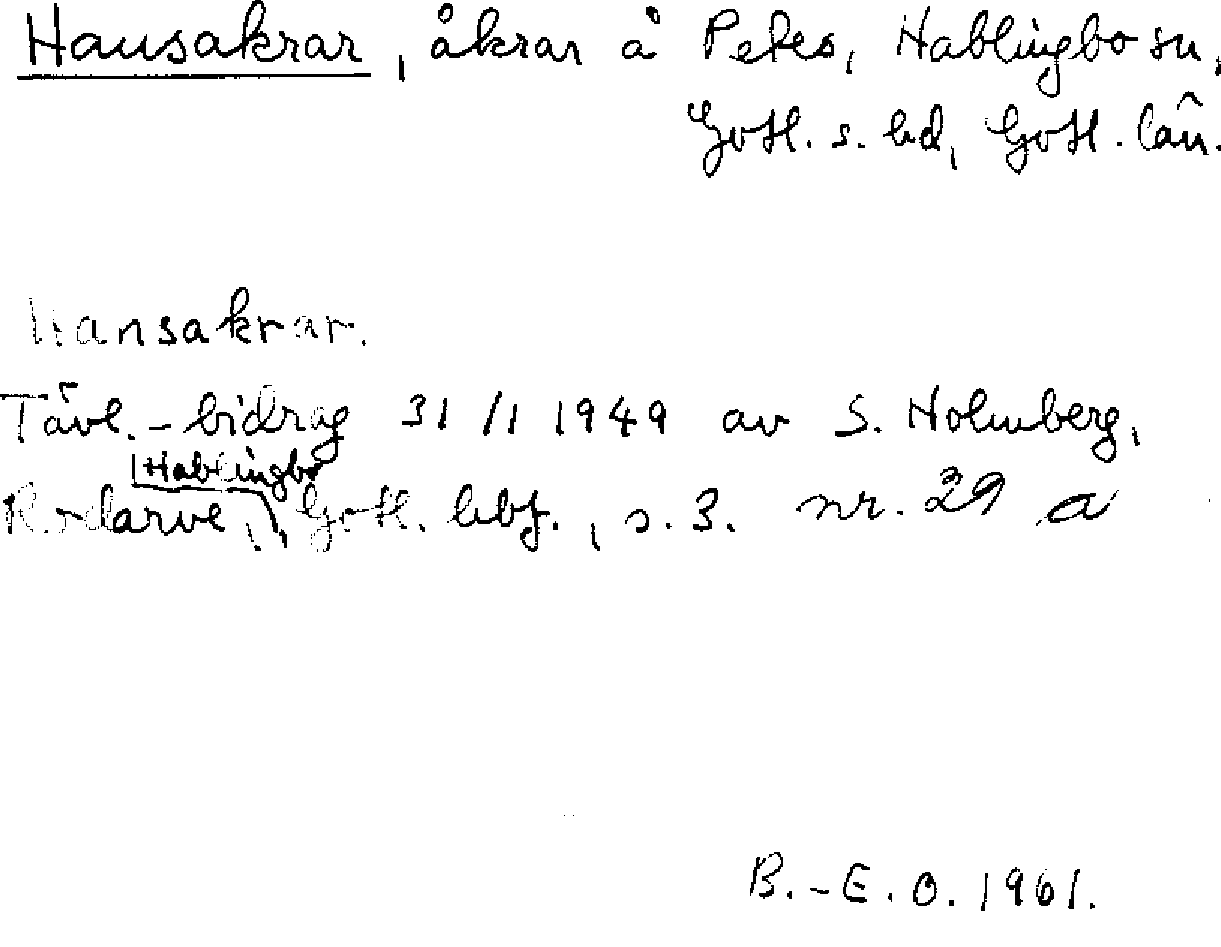 Hansakrar, åkrar å Petes, Hablingbo sn,
Gotl. s. hd, Gotl. län.
Hansakrar.
Tävl.-bidrag 31/1 1949 av S. Holmberg,
Hablingbo
Rodarve, Gotl. hbf., s. 3. nr. 29 a
B.-E. O. 1961.